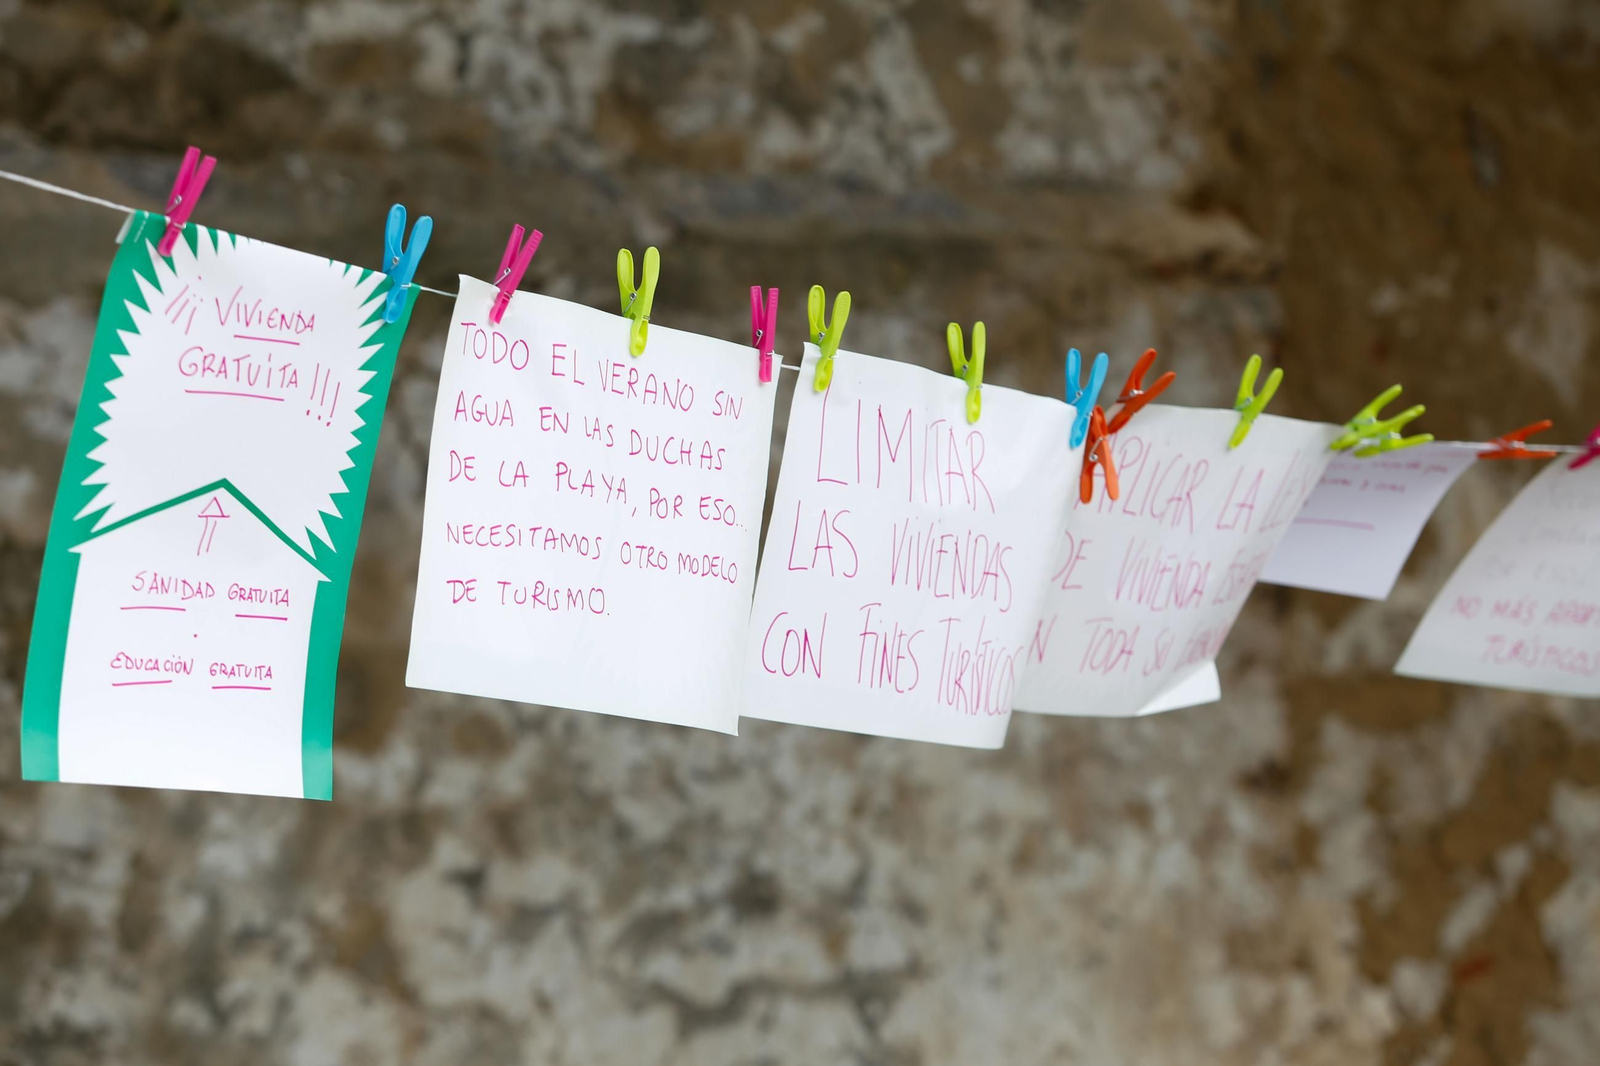 ¡¡¡ VIVIENDA
GRATUITA !!!
SANIDAD GRATUITA
.
EDUCACIÓN GRATUITA
TODO EL VERANO SIN
AGUA EN LAS DUCHAS
DE LA PLAYA, POR ESO...
NECESITAMOS OTRO MODELO
DE TURISMO.
LIMITAR
LAS VIVIENDAS
CON FINES TURÍSTICOS
APLICAR LA LEY
DE VIVIENDA
TODA SU
NO MÁS
TURÍSTICOS